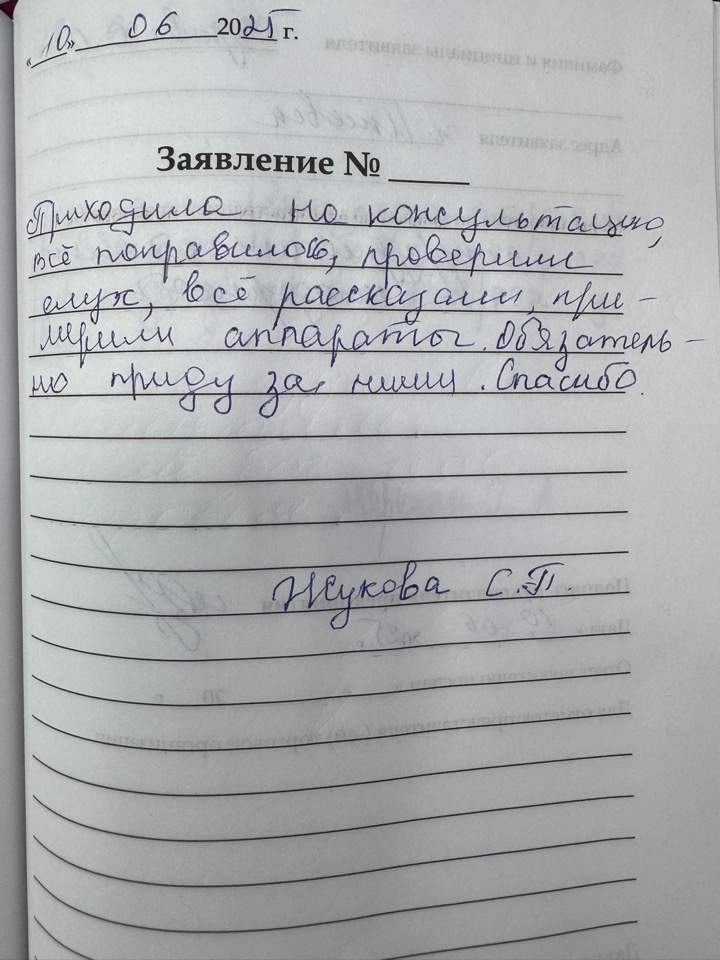 «10» 06 2025 г.
Заявление № ____
Приходила на консультацию,
всё понравилось, проверили
слух, всё рассказали, при-
мерили аппараты. Обязатель-
но приду за ними. Спасибо.
Жукова С.П.